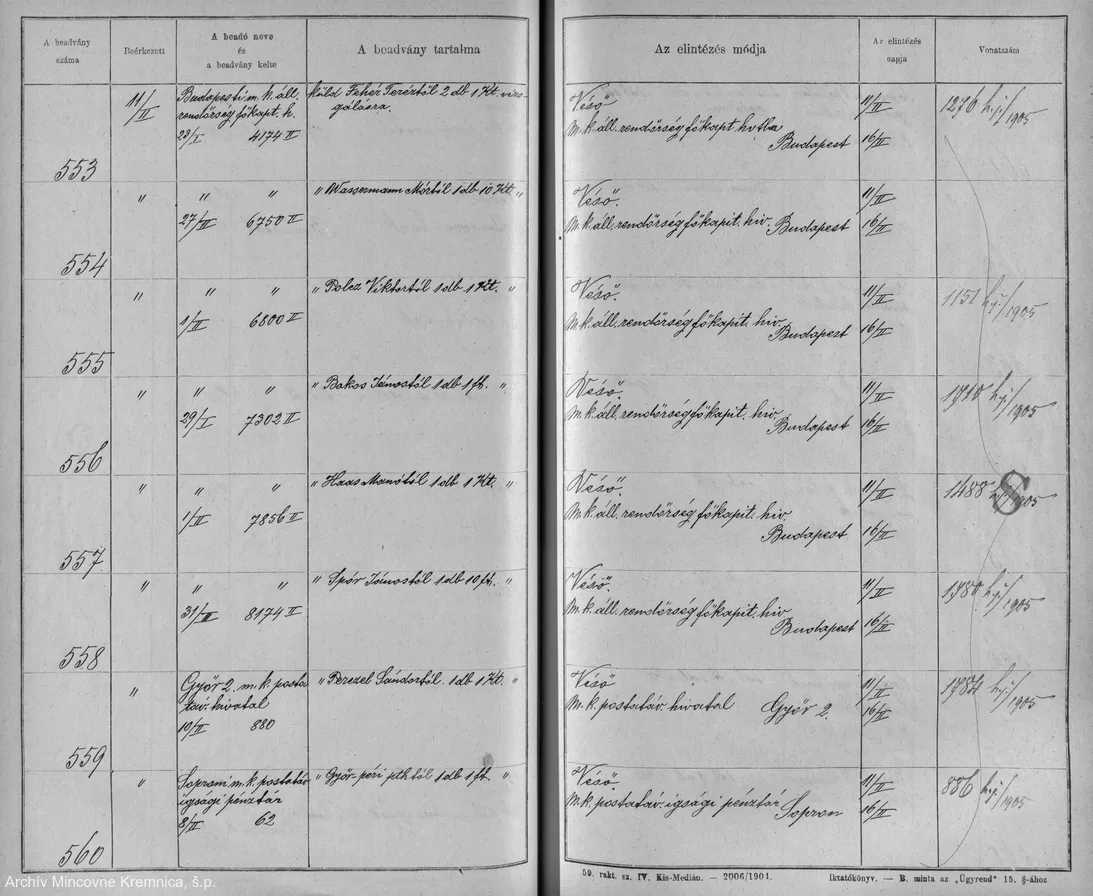 A beadvány száma
Beérkezett
A beadó neve és a beadvány kelte
A beadvány tartalma
Az elintézés módja
Az elintézés napja
Vonatszám
553
11/II
Budapesti m. k. áll.
rendőrség főkapt. h.
23/I 4174 II
küld Fehér Teréztől 2 db 1 Kt. vizs-
gálásra.
Véső
M. k. áll. rendőrség főkapt hvtla
Budapest
11/II
16/II
1276 h.j./1905
554
" " "
27/II 6750 II
" Wassermann Mórtól 1 db 10 Kt. "
Véső.
M. k. áll. rendőrség főkapit. hiv.
Budapest
11/II
16/II
555
" " "
1/II 6800 II
" Bolcz Viktortól 1 db 1 Kt. "
Véső.
M. k. áll. rendőrség főkapit. hiv.
Budapest
11/II
16/II
1151 h.j./1905
556
" " "
29/I 7302 II
" Bakos Jánostól 1 db 1 ft. "
Véső.
M. k. áll. rendőrség főkapit. hiv.
Budapest
11/II
16/II
h.j./1905
557
" " "
1/II 7856 II
" Haas Manótól 1 db 1 Kt. "
Véső.
M. k. áll. rendőrség főkapit. hiv.
Budapest
11/II
16/II
1488 h.j./1905
558
" " "
31/II 8174 II
" Spór Jánostól 1 db 10 ft. "
Véső.
M. k. áll. rendőrség főkapit. hiv
Budapest
11/II
16/II
h.j./1905
559
"
Győr 2. m. k. posta
táv. hivatal
10/II 880
" Perczel Sándortól. 1 db 1 Kt. "
Véső
M. k. postatáv. hivatal Győr 2.
11/II
16/II
h.j./1905
560
"
Soproni m. k. postatáv
igsági pénztár
8/II 62
" Győr-péri pthtól 1 db 1 ft. "
Véső.
M. k. postatáv. igsági pénztár
Sopron
11/II
16/II
886 h.j./1905
59. rakt. sz. IV. Kis-Medián. — 2006/1904.
Iktatókönyv. — B. minta az „Ügyrend" 15. §-ához
Archív Mincovne Kremnica, š.p.